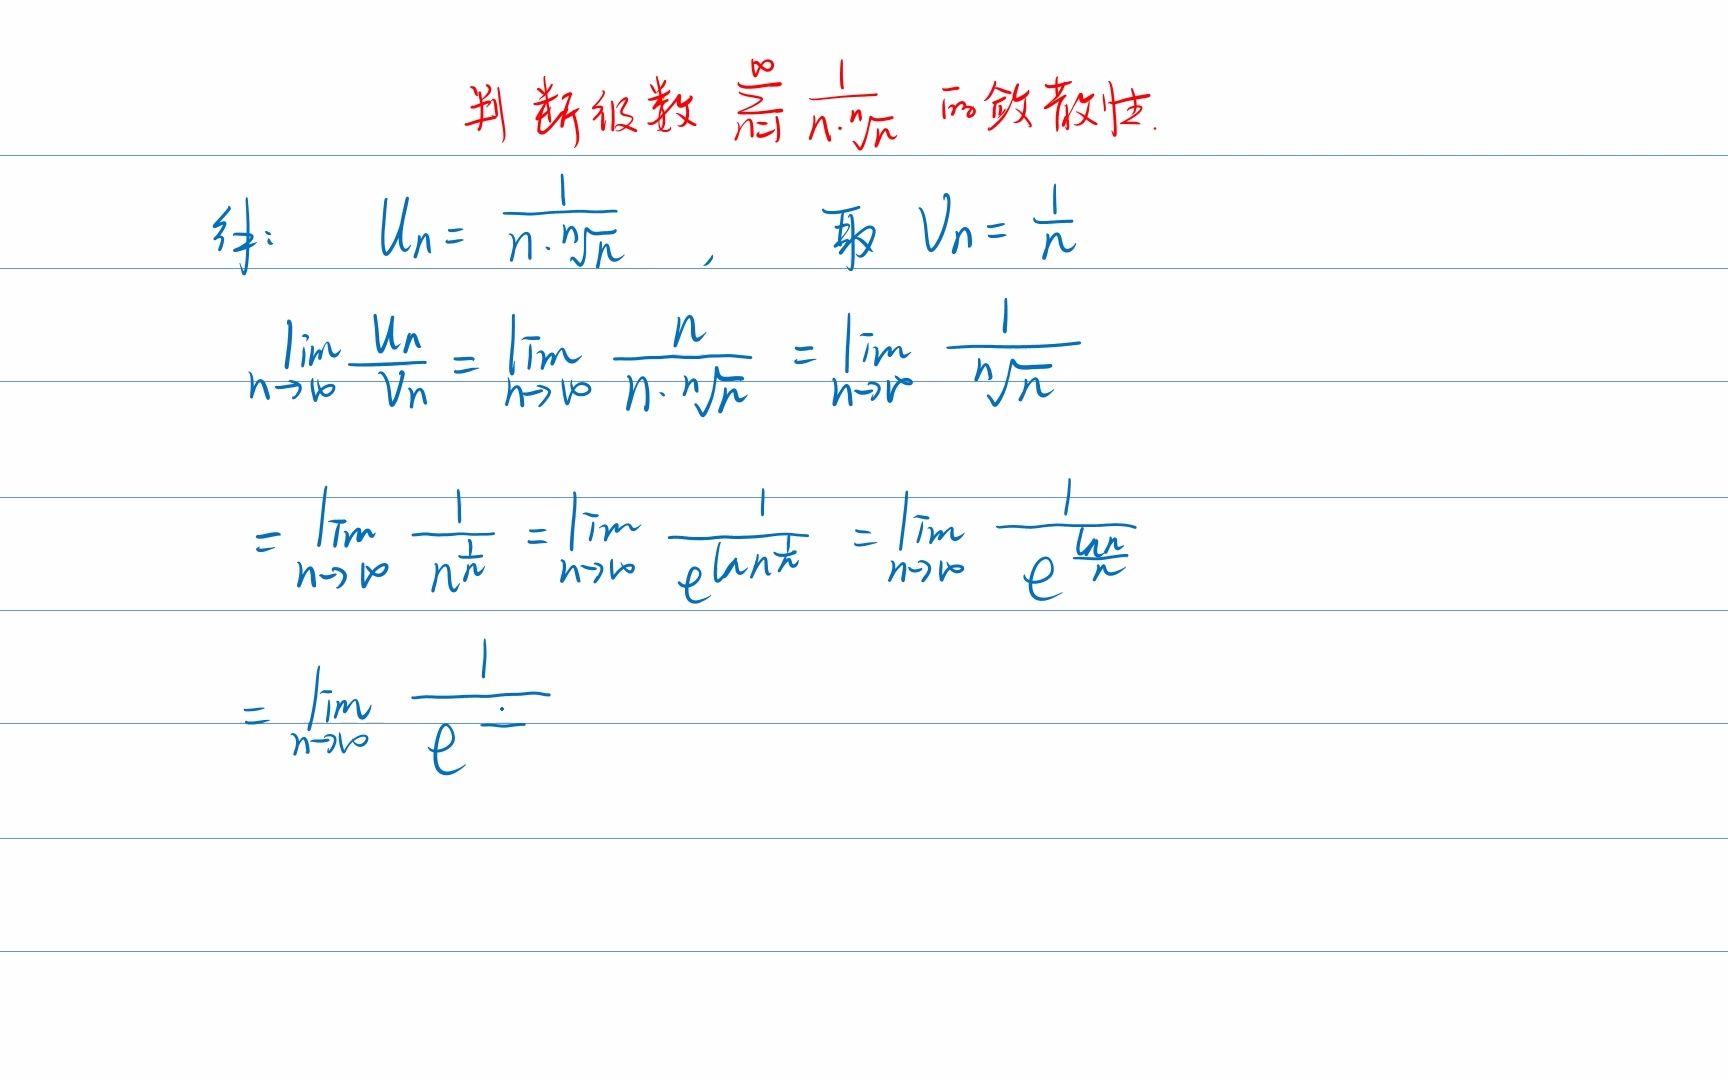 判断级数 $\sum_{n=1}^{\infty} \frac{1}{n \cdot \sqrt[n]{n}}$ 的敛散性.
解: $U_n = \frac{1}{n \cdot \sqrt[n]{n}}$ , 取 $V_n = \frac{1}{n}$
$\lim_{n \to \infty} \frac{U_n}{V_n} = \lim_{n \to \infty} \frac{n}{n \cdot \sqrt[n]{n}} = \lim_{n \to \infty} \frac{1}{\sqrt[n]{n}}$
$= \lim_{n \to \infty} \frac{1}{n^{\frac{1}{n}}} = \lim_{n \to \infty} \frac{1}{e^{\ln n^{\frac{1}{n}}}} = \lim_{n \to \infty} \frac{1}{e^{\frac{\ln n}{n}}}$
$= \lim_{n \to \infty} \frac{1}{e}$